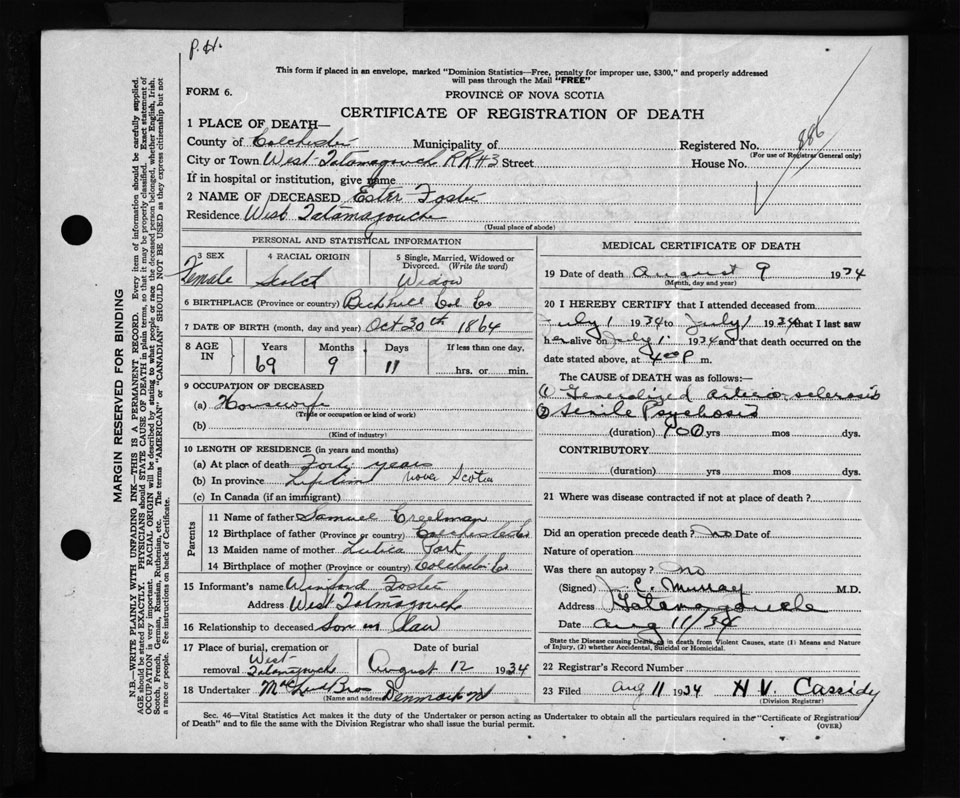 P.H.
This form if placed in an envelope, marked "Dominion Statistics—Free, penalty for improper use, $300," and properly addressed
will pass through the Mail "FREE"
FORM 6.
PROVINCE OF NOVA SCOTIA
CERTIFICATE OF REGISTRATION OF DEATH
886
1 PLACE OF DEATH—
County of Colchester Municipality of Registered No.
(For use of Registrar General only)
City or Town West Tatamagouche RR#3 Street House No.
If in hospital or institution, give name
2 NAME OF DECEASED Ester Foster
Residence West Tatamagouche
(Usual place of abode)
PERSONAL AND STATISTICAL INFORMATION
3 SEX 4 RACIAL ORIGIN 5 Single, Married, Widowed or Divorced. (Write the word)
Female Scotch Widow
6 BIRTHPLACE (Province or country) Col Co
7 DATE OF BIRTH (month, day and year) Oct 30th 1864
8 AGE IN Years Months Days If less than one day,
69 9 11 hrs. or min.
9 OCCUPATION OF DECEASED
(a) Housewife
(Trade or occupation or kind of work)
(b)
(Kind of industry)
10 LENGTH OF RESIDENCE (in years and months)
(a) At place of death Forty years
(b) In province Lifetime Nova Scotia
(c) In Canada (if an immigrant)
Parents
11 Name of father Samuel Creelman
12 Birthplace of father (Province or country) Colchester Co
13 Maiden name of mother
14 Birthplace of mother (Province or country) Colchester Co
15 Informant's name Foster
Address West Tatmagouche
16 Relationship to deceased Son in Law
17 Place of burial, cremation or removal West Tatamagouche Date of burial August 12 1934
18 Undertaker Bros Denmark NS
(Name and address)
MEDICAL CERTIFICATE OF DEATH
19 Date of death August 9 1934
(Month, day and year)
20 I HEREBY CERTIFY that I attended deceased from
July 1 1934 to July 1 1934 that I last saw
her alive on July 1 1934 and that death occurred on the
date stated above, at 400 P m.
The CAUSE OF DEATH was as follows:—
(1) Generalized arteriosclerosis
(2) Senile Psychosis
(duration) yrs mos dys.
CONTRIBUTORY
(duration) yrs mos dys.
21 Where was disease contracted if not at place of death?
Did an operation precede death? no Date of
Nature of operation
Was there an autopsy? no
(Signed) C. Murray M.D.
Address Tatamagouche
Date Aug 11/34
State the Disease causing Death, or in death from Violent Causes, state (1) Means and Nature
of Injury, (2) whether Accidental, Suicidal or Homicidal.
22 Registrar's Record Number
23 Filed Aug 11 1934 H V. Cassidy
(Division Registrar)
Sec. 46—Vital Statistics Act makes it the duty of the Undertaker or person acting as Undertaker to obtain all the particulars required in the "Certificate of Registration
of Death" and to file the same with the Division Registrar who shall issue the burial permit.
(OVER)
MARGIN RESERVED FOR BINDING
N.B.—WRITE PLAINLY WITH UNFADING INK—THIS IS A PERMANENT RECORD. Every item of information should be carefully supplied.
AGE should be stated EXACTLY. PHYSICIANS should STATE CAUSE OF DEATH in plain terms, so that it may be properly classified. Exact statement of
OCCUPATION is very important. RACIAL ORIGIN will be described by stating to what people or race the deceased person belonged, whether English, Irish,
Scotch, French, German, Russian, Ruthenian, etc. The terms "AMERICAN" or "CANADIAN" SHOULD NOT BE USED as they express citizenship but not
a race or people. See instructions on back of Certificate.